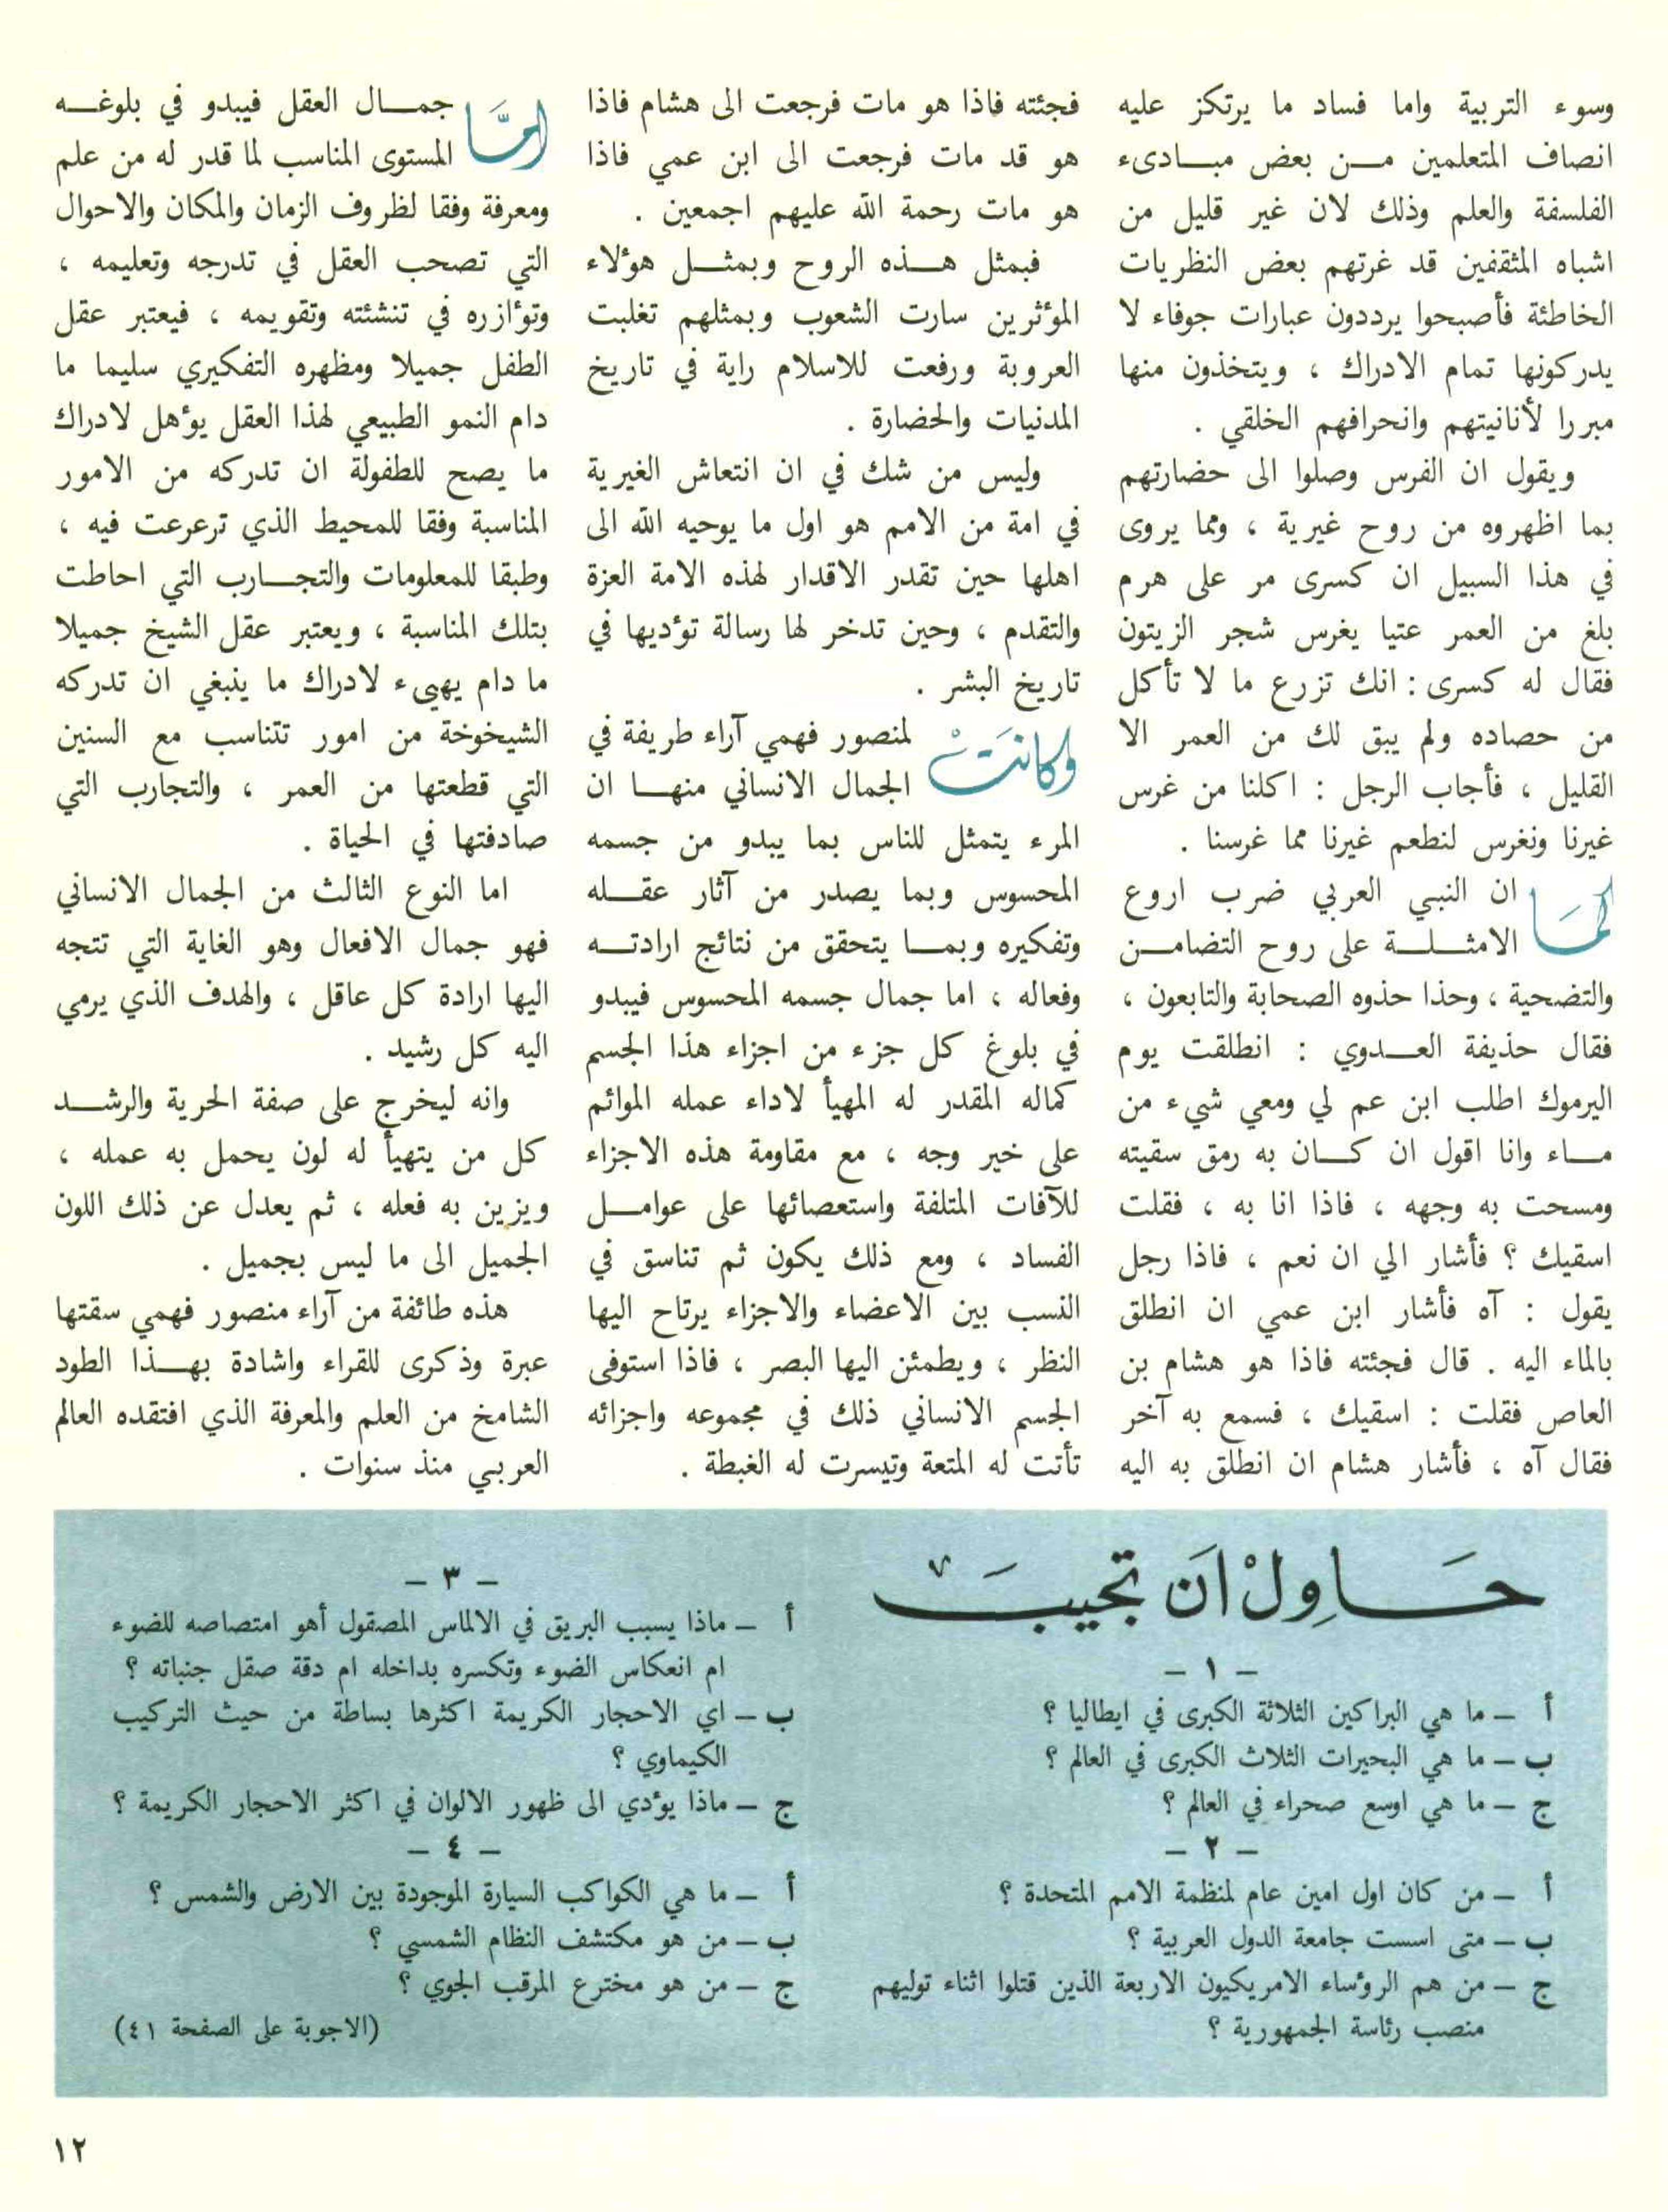 وسوء التربية واما فساد ما يرتكز عليه
انصاف المتعلمين مـن بعض مبـادىء
الفلسفة والعلم وذلك لان غير قليل من
اشباه المثقفين قد غرتهم بعض النظريات
الخاطئة فأصبحوا يرددون عبارات جوفاء لا
يدركونها تمام الادراك ، ويتخذون منها
مبررا لأنانيتهم وانحرافهم الخلقي .
ويقول ان الفرس وصلوا الى حضارتهم
بما اظهروه من روح غيرية ، ومما يروى
في هذا السبيل ان كسرى مر على هرم
بلغ من العمر عتيا يغرس شجر الزيتون
فقال له كسرى : انك تزرع ما لا تأكل
من حصاده ولم يبق لك من العمر الا
القليل ، فأجاب الرجل : اكلنا من غرس
غيرنا ونغرس لنطعم غيرنا مما غرسنا .
كما ان النبي العربي ضرب اروع
الامثـلـة على روح التضامـن
والتضحية ، وحذا حذوه الصحابة والتابعون ،
فقال حذيفة العـدوي : انطلقت يوم
اليرموك اطلب ابن عم لي ومعي شيء من
مـاء وانا اقول ان كـان به رمق سقيته
ومسحت به وجهه ، فاذا انا به ، فقلت
اسقيك ؟ فأشار الي ان نعم ، فاذا رجل
يقول : آه فأشار ابن عمي ان انطلق
بالماء اليه . قال فجئته فاذا هو هشام بن
العاص فقلت : اسقيك ، فسمع به آخر
فقال آه ، فأشار هشام ان انطلق به اليه
فجئته فاذا هو مات فرجعت الى هشام فاذا
هو قد مات فرجعت الى ابن عمي فاذا
هو مات رحمة الله عليهم اجمعين .
فبمثل هـذه الروح وبمثـل هؤلاء
المؤثرين سارت الشعوب وبمثلهم تغلبت
العروبة ورفعت للاسلام راية في تاريخ
المدنيات والحضارة .
وليس من شك في ان انتعاش الغيرية
في امة من الامم هو اول ما يوحيه الله الى
اهلها حين تقدر الاقدار لهذه الامة العزة
والتقدم ، وحين تدخر لها رسالة تؤديها في
تاريخ البشر .
وكانت لمنصور فهمي آراء طريفة في
الجمال الانساني منهـا ان
المرء يتمثل للناس بما يبدو من جسمه
المحسوس وبما يصدر من آثار عقـله
وتفكيره وبمـا يتحقق من نتائج ارادتـه
وفعاله ، اما جمال جسمه المحسوس فيبدو
في بلوغ كل جزء من اجزاء هذا الجسم
كماله المقدر له المهيأ لاداء عمله الموائم
على خير وجه ، مع مقاومة هذه الاجزاء
للآفات المتلفة واستعصائها على عوامـل
الفساد ، ومع ذلك يكون ثم تناسق في
النسب بين الاعضاء والاجزاء يرتاح اليها
النظر ، ويطمئن اليها البصر ، فاذا استوفى
الجسم الانساني ذلك في مجموعه واجزائه
تأتت له المتعة وتيسرت له الغبطة .
امَّا جمـال العقل فيبدو في بلوغـه
المستوى المناسب لما قدر له من علم
ومعرفة وفقا لظروف الزمان والمكان والاحوال
التي تصحب العقل في تدرجه وتعليمه ،
وتؤازره في تنشئته وتقويمه ، فيعتبر عقل
الطفل جميلا ومظهره التفكيري سليما ما
دام النمو الطبيعي لهذا العقل يؤهل لادراك
ما يصح للطفولة ان تدركه من الامور
المناسبة وفقا للمحيط الذي ترعرعت فيه ،
وطبقا للمعلومات والتجـارب التي احاطت
بتلك المناسبة ، ويعتبر عقل الشيخ جميلا
ما دام يهيىء لادراك ما ينبغي ان تدركه
الشيخوخة من امور تتناسب مع السنين
التي قطعتها من العمر ، والتجارب التي
صادفتها في الحياة .
اما النوع الثالث من الجمال الانساني
فهو جمال الافعال وهو الغاية التي تتجه
اليها ارادة كل عاقل ، والهدف الذي يرمي
اليه كل رشيد .
وانه ليخرج على صفة الحرية والرشـد
كل من يتهيأ له لون يحمل به عمله ،
ويزين به فعله ، ثم يعدل عن ذلك اللون
الجميل الى ما ليس بجميل .
هذه طائفة من آراء منصور فهمي سقتها
عبرة وذكرى للقراء واشادة بهـذا الطود
الشامخ من العلم والمعرفة الذي افتقده العالم
العربي منذ سنوات .
حَـاوِلْ اَن تجيبَ
– ١ –
أ – ما هي البراكين الثلاثة الكبرى في ايطاليا ؟
ب – ما هي البحيرات الثلاث الكبرى في العالم ؟
ج – ما هي اوسع صحراء في العالم ؟
– ٢ –
أ – من كان اول امين عام لمنظمة الامم المتحدة ؟
ب – متى اسست جامعة الدول العربية ؟
ج – من هم الرؤساء الامريكيون الاربعة الذين قتلوا اثناء توليهم
منصب رئاسة الجمهورية ؟
– ٣ –
أ – ماذا يسبب البريق في الالماس المصقول أهو امتصاصه للضوء
ام انعكاس الضوء وتكسره بداخله ام دقة صقل جنباته ؟
ب – اي الاحجار الكريمة اكثرها بساطة من حيث التركيب
الكيماوي ؟
ج – ماذا يؤدي الى ظهور الالوان في اكثر الاحجار الكريمة ؟
– ٤ –
أ – ما هي الكواكب السيارة الموجودة بين الارض والشمس ؟
ب – من هو مكتشف النظام الشمسي ؟
ج – من هو مخترع المرقب الجوي ؟
(الاجوبة على الصفحة ٤١)
١٢